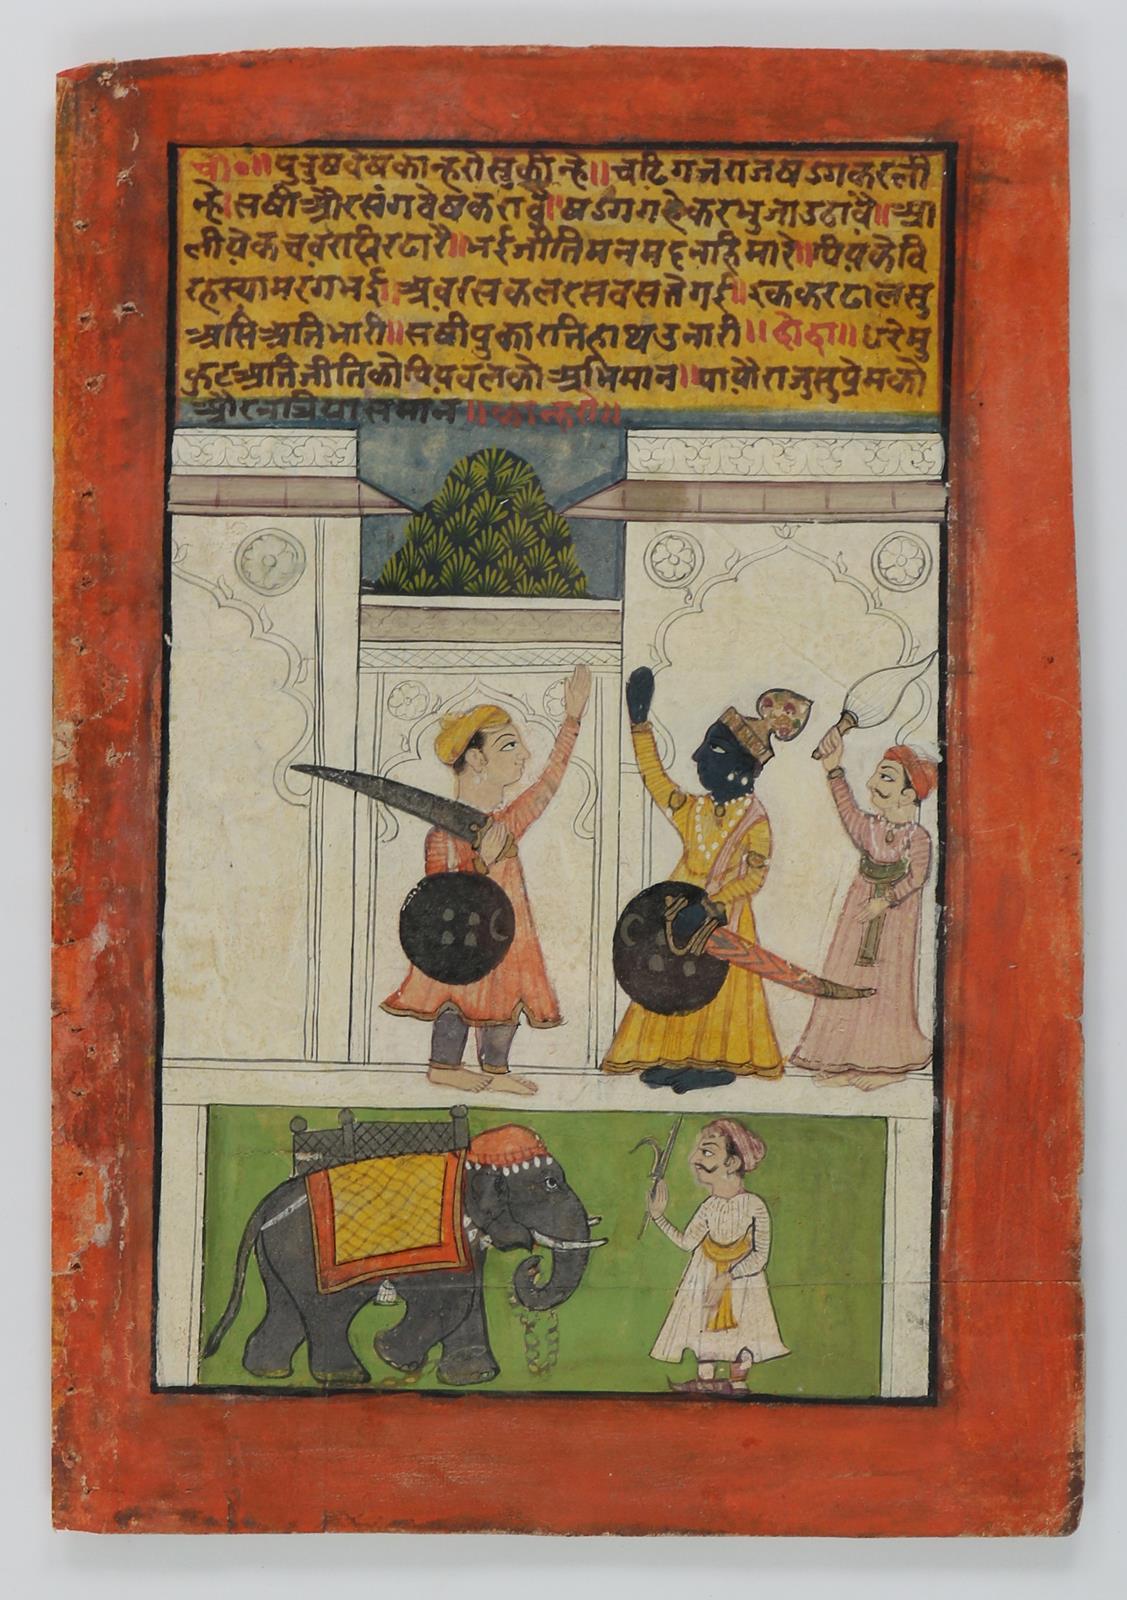 चौ०॥ पुरुषवेषकान्हरौसुकीन्है॥ चढिगजराजषडगकरली
न्है॥सषीऔरसंगवेषकरावै॥षडगगहेकरभुजाउठावै॥आ
लीयेकचवरसिरढारै॥भईजीतिमनमदनहिमारे॥पियकैवि
रहस्यामरगभई॥अवरसकलरसेवसतैगई॥रककरढालसु
असिअतिभारी॥सषीपुकारतिहाथउनारी॥ दोहा॥ धरेमु
कुटअतिजीतिकोपियवलकोअभिमान॥पायौराजुसुप्रेमको
औरनत्रियासमान॥ कान्हरो॥